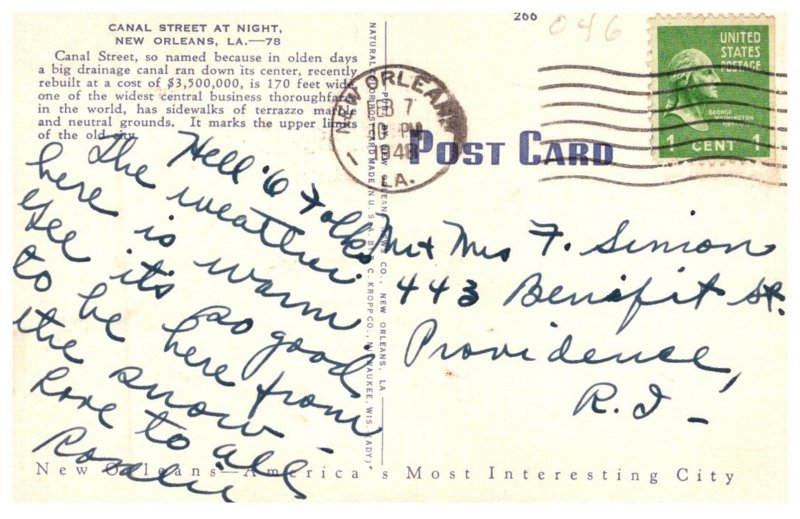 CANAL STREET AT NIGHT,
NEW ORLEANS, LA.—78
Canal Street, so named because in olden days
a big drainage canal ran down its center, recently
rebuilt at a cost of $3,500,000, is 170 feet wide
one of the widest central business thoroughfares
in the world, has sidewalks of terrazzo marble
and neutral grounds. It marks the upper limits
of the old city.
Hello Folks
The weather
here is warm
Gee its so good
to be here from
the snow -
Love to all
Rosalie
266
046
NEW ORLEANS
FEB 7
PM
1948
LA.
1
POST CARD
UNITED
STATES
POSTAGE
GEORGE
WASHINGTON
1 CENT 1
Mr + Mrs F. Simon
443 Benefit St.
Providence,
R.I-
New Orleans—America's Most Interesting City